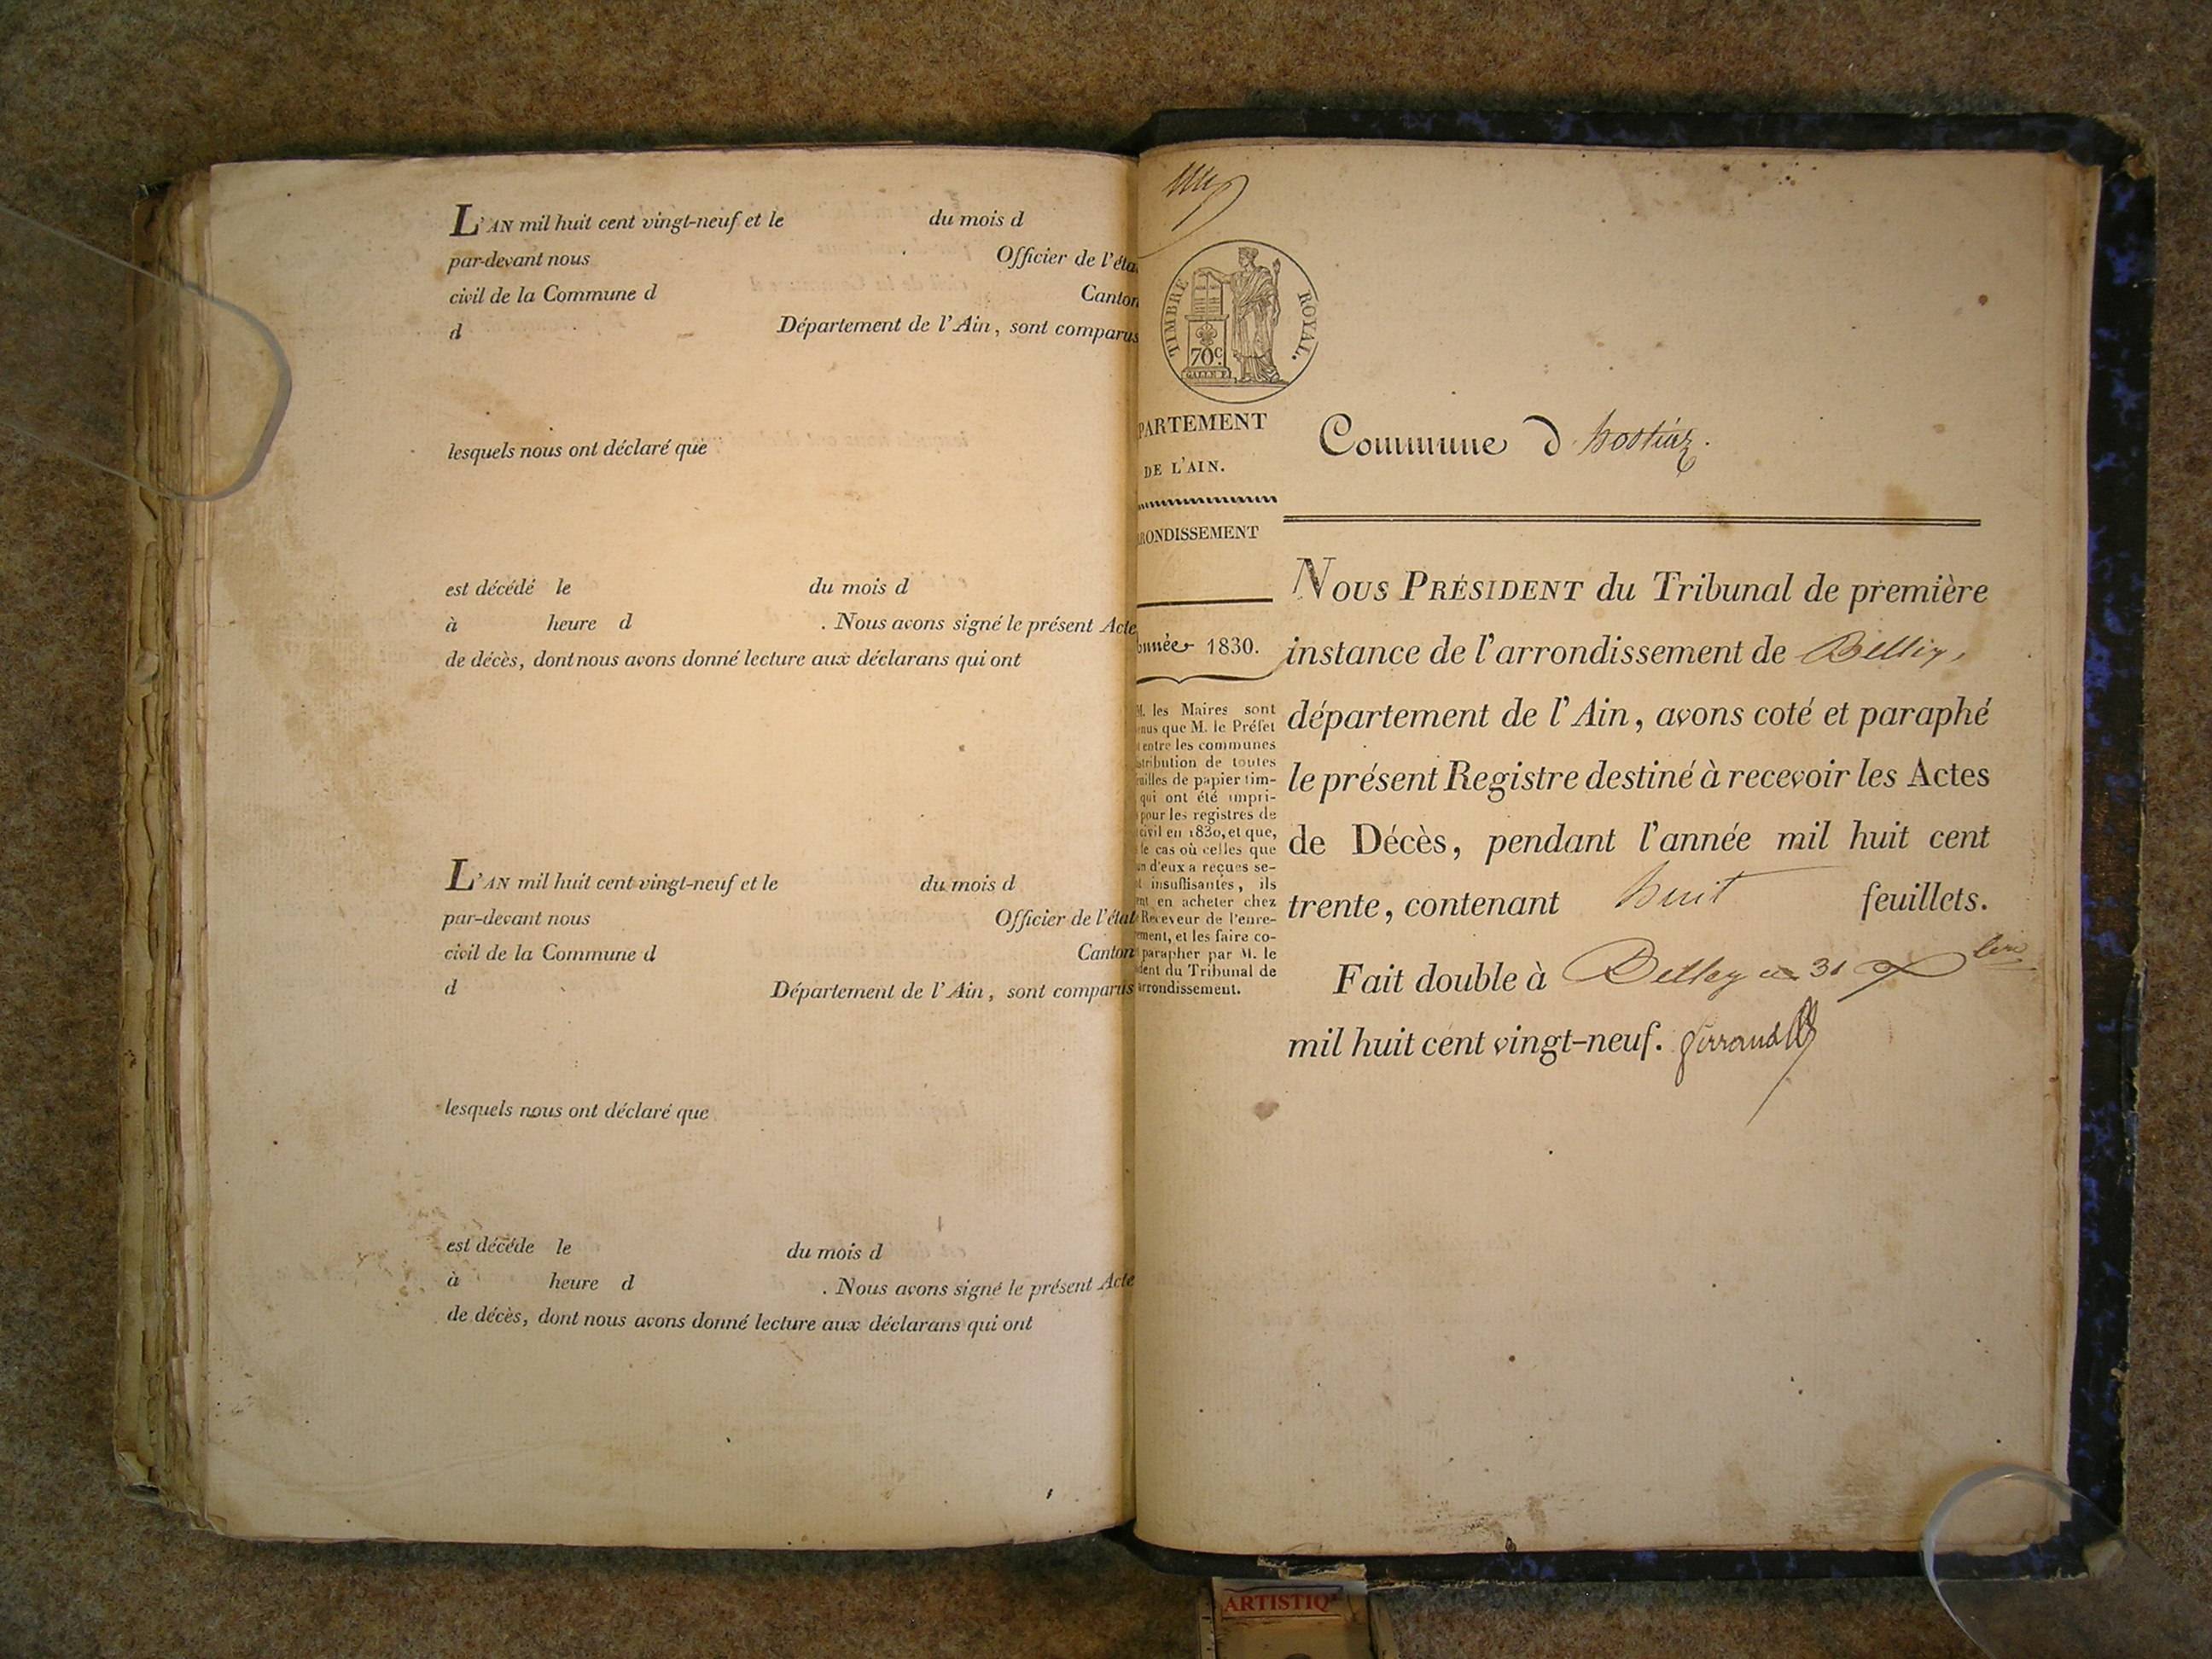 L'AN mil huit cent vingt-neuf et le du mois d
par-devant nous Officier de l'éta
civil de la Commune d Canton
d Département de l'Ain, sont comparus
lesquels nous ont déclaré que
est décédé le du mois d
à heure d . Nous avons signé le présent Acte
de décès, dont nous avons donné lecture aux déclarans qui ont
L'AN mil huit cent vingt-neuf et le du mois d
par-devant nous Officier de l'état
civil de la Commune d Canton
d Département de l'Ain, sont comparus
lesquels nous ont déclaré que
est décéde le du mois d
à heure d . Nous avons signé le présent Acte
de décès, dont nous avons donné lecture aux déclarans qui ont
TIMBRE ROYAL.
70c.
PARTEMENT
DE L'AIN.
RONDISSEMENT
nnée 1830.
M. les Maires sont
nus que M. le Préfet
entre les communes
tribution de toutes
uilles de papier tim-
qui ont été impri-
pour les registres de
civil en 1830, et que,
le cas où celles que
un d'eux a reçues se-
t insuffisantes, ils
nt en acheter chez
Receveur de l'enre-
ement, et les faire co-
parapher par M. le
dent du Tribunal de
arrondissement.
Commune d hostiaz.
NOUS PRÉSIDENT du Tribunal de première
instance de l'arrondissement de Belley,
département de l'Ain, avons coté et paraphé
le présent Registre destiné à recevoir les Actes
de Décès, pendant l'année mil huit cent
trente, contenant huit feuillets.
Fait double à Belley ce 31 Xbre
mil huit cent vingt-neuf. Girrand
ARTISTIQ